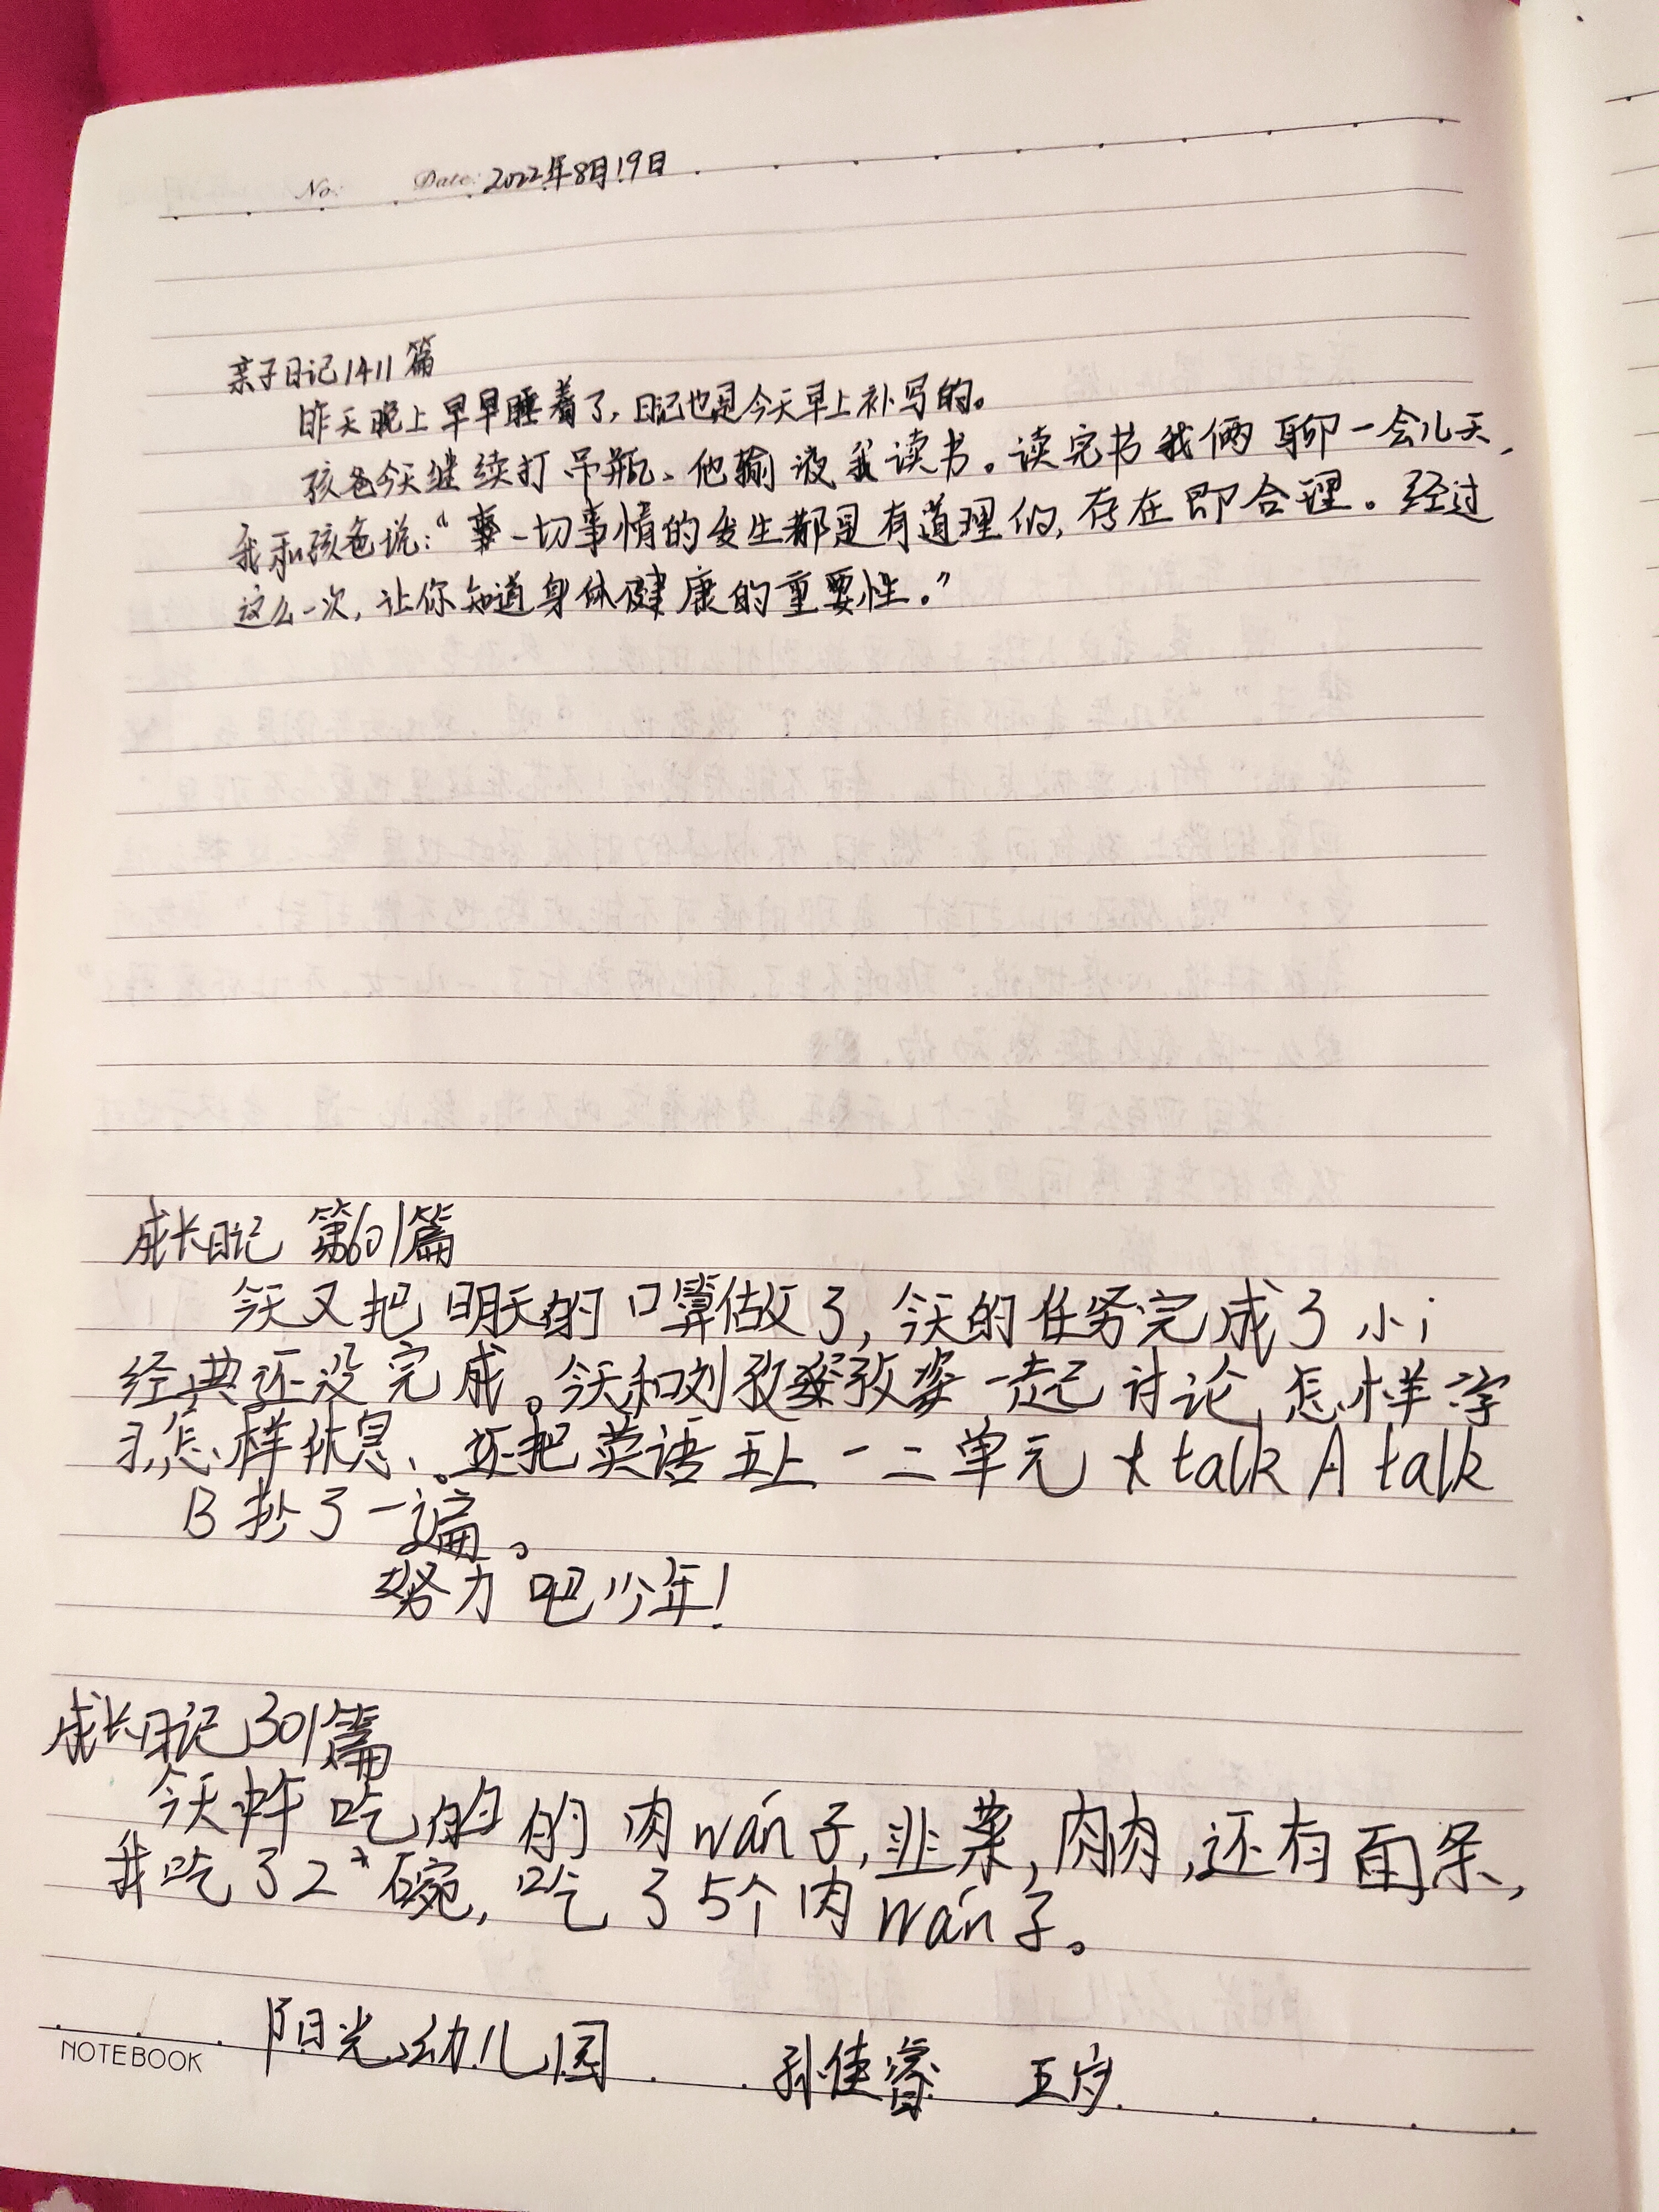 No: Date: 2022年8月19日
亲子日记1411篇
昨天晚上早早睡着了,日记也是今天早上补写的。
孩爸今天继续打吊瓶、他输液我读书。读完书我俩聊一会儿天,
我和孩爸说:“一切事情的发生都是有道理的,存在即合理。经过
这么一次,让你知道身体健康的重要性。”
成长日记 第601篇
今天又把明天的口算做了,今天的任务完成了小i
经典还没完成。今天和刘孜孜姿一起讨论,怎样学
习,怎样休息、。还把英语五上一二单元 talk A talk
B抄了一遍。
努力吧少年!
成长日记301篇
今天炸吃的的肉wán子,韭菜,肉肉,还有面条,
我吃了2碗,吃了5个肉wán子。
NOTEBOOK 阳光幼儿园 孙佳睿 五岁